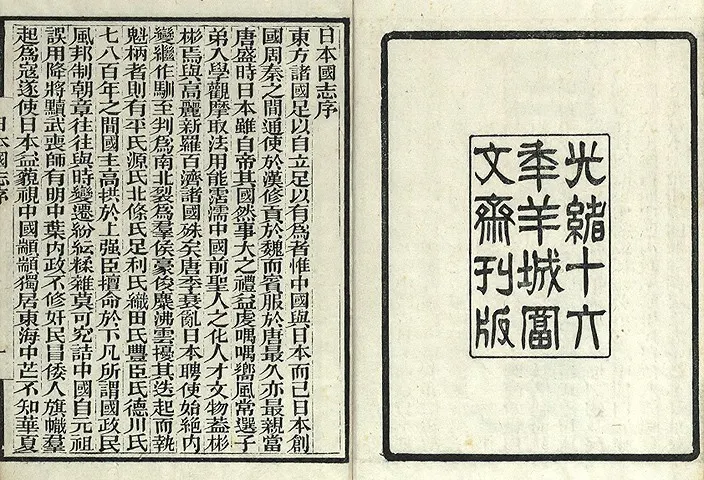 光緒十六
年羊城富
文齋刊版
日本國志序
東方諸國足以自立足以有爲者惟中國與日本而已日本創
國周秦之間通使於漢修貢於魏而賓服於唐最久亦最親當
唐盛時日本雖自帝其國然事大之禮益虔喁喁嚮風常選子
弟入學觀摩取法用能霑濡中國前聖人之化人才文物蓋彬
彬焉與高麗新羅百濟諸國殊矣唐季衰亂日本聘使始絕內
變繼作馴至判爲南北裂爲羣侯豪俊麋沸雲擾其迭起而執
魁柄者則有平氏源氏北條氏足利氏織田氏豐臣氏德川氏
七八百年之間國主高拱於上强臣擅命於下凡所謂國政民
風邦制朝章往往與時變遷紛紜糅雜莫可究詰中國自元祖
誤用降將黷武喪師有明中葉內政不修奸民冒倭人旗幟羣
起爲寇遂使日本益藐視中國顓顓獨居東海中芒不知華夏
日本國志序
一